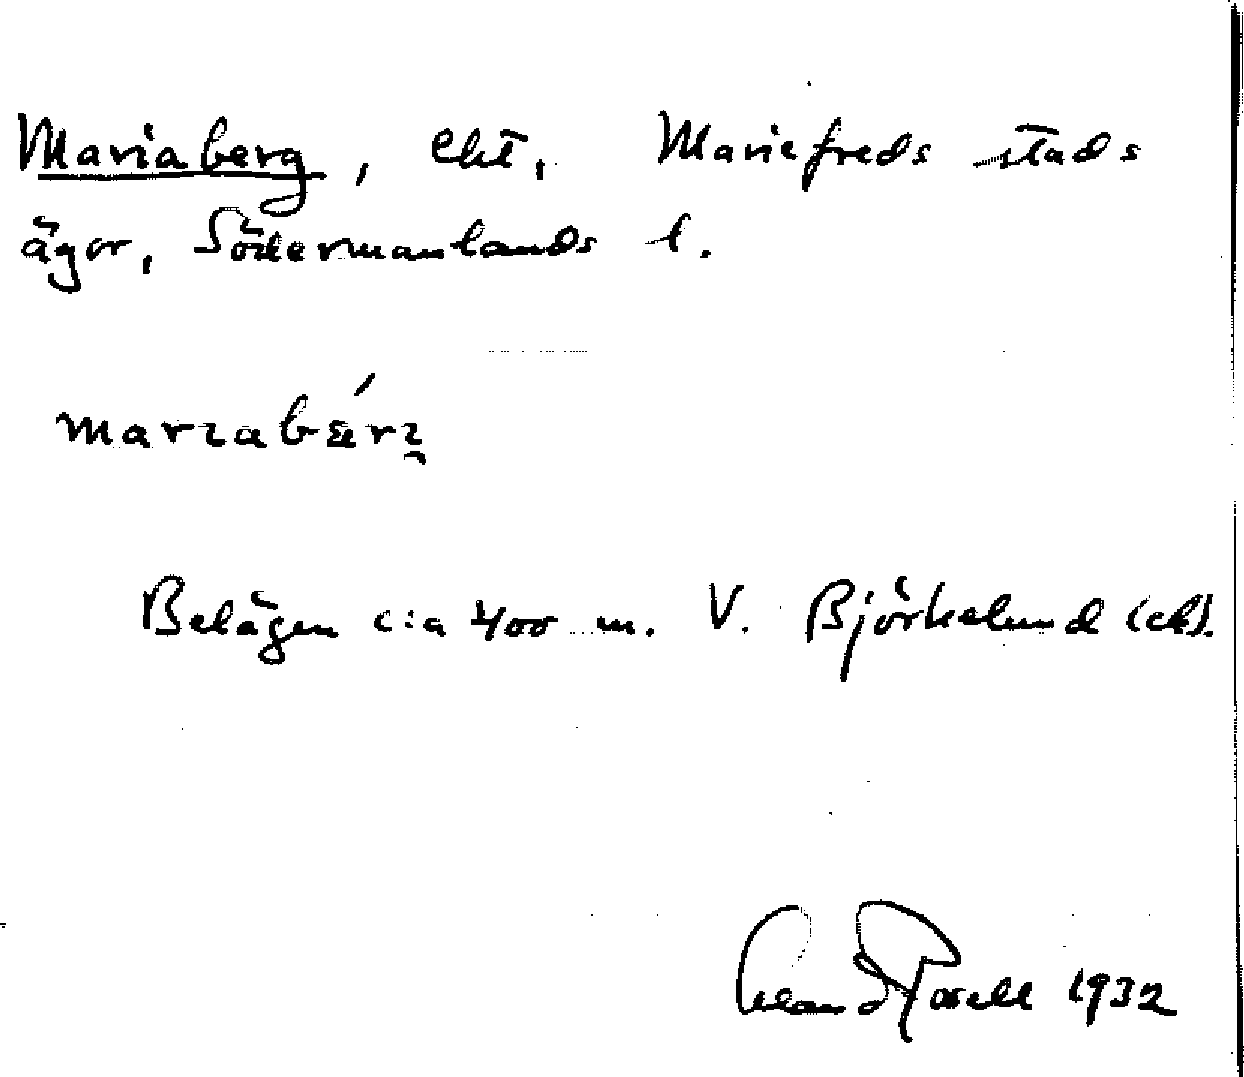 Mariaberg, eht, Mariefreds stads
ägor, Södermanlands l.
Belägen c:a 400 m. V. Björkelund (eh).
1932